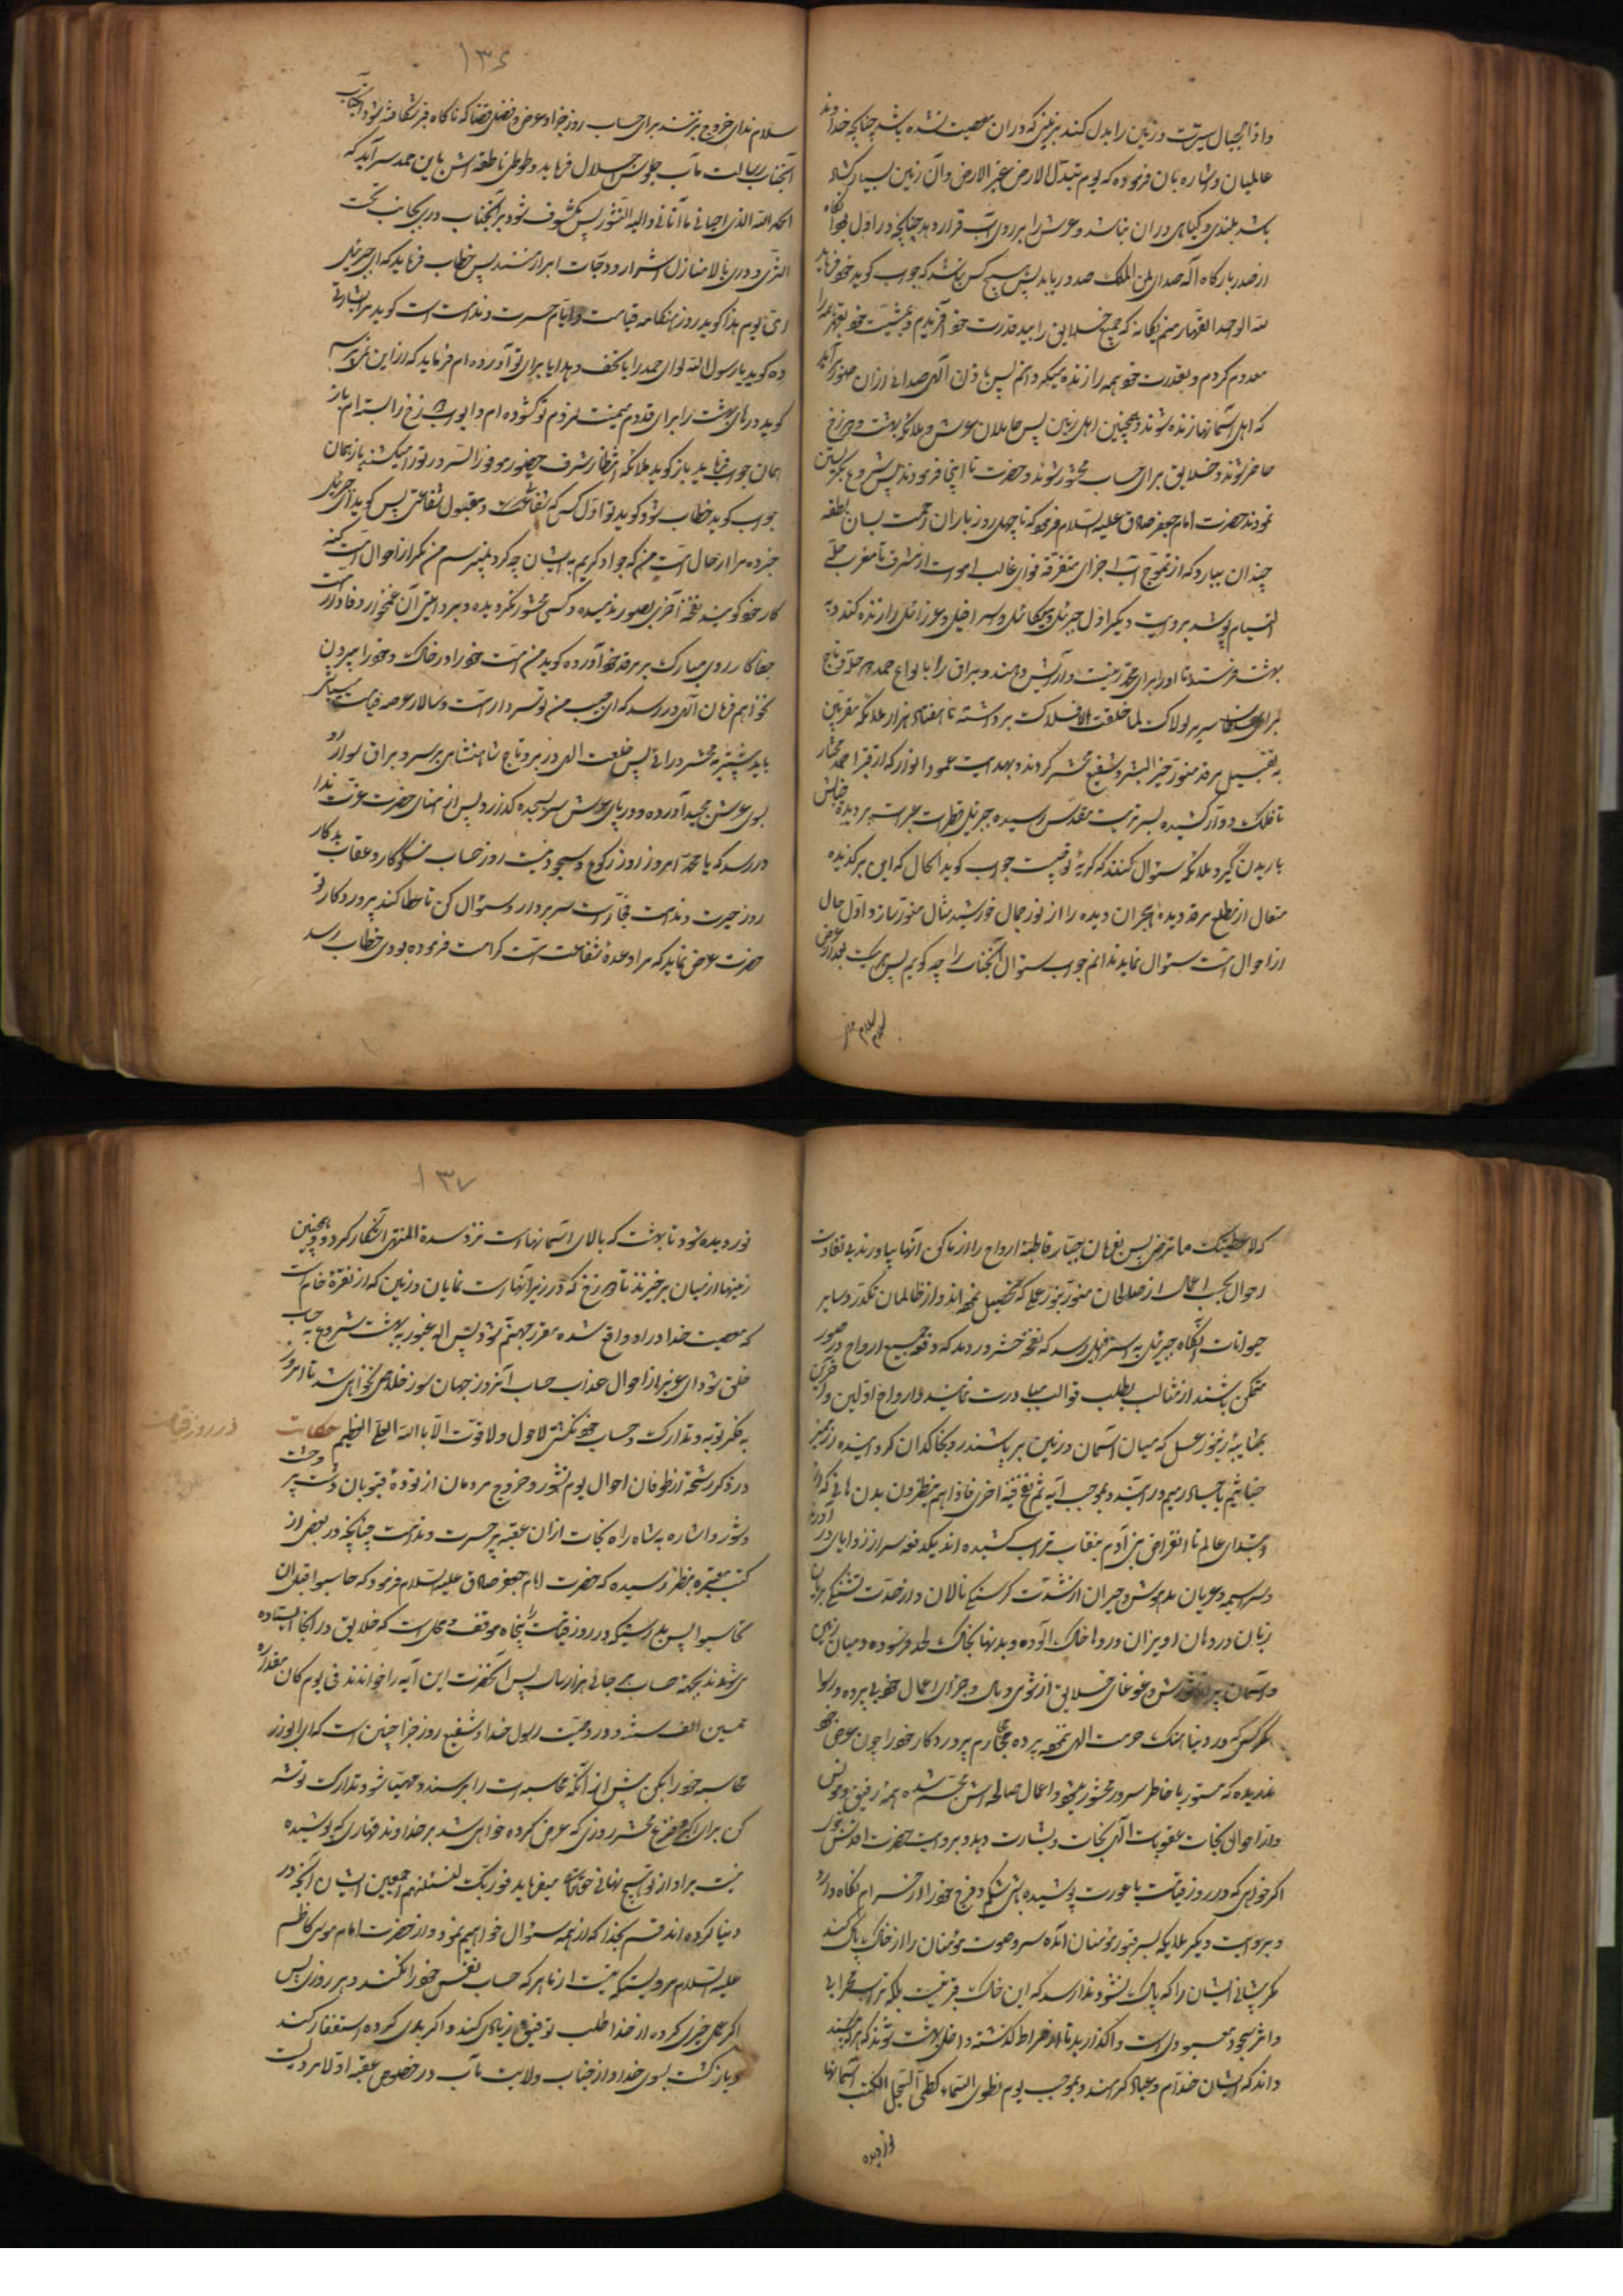 واذا الجبال سیرت و زمین را بدل کند بزمینی که در ان معصیت نشده باشد چنانچه خداوند
عالمیان اشاره بان فرموده که یوم تبدل الارض غیر الارض وآن زمین بسیار کشاده
باشد بلندی و کیاهی در ان نباشد و عرش را بر روی آب قرار دهد چنانچه در اول بود آنکاه
از صدر بارکاه آله صدای لمن الملک صدور یابد پس هیچ کس نباشد که جواب کوید خود فرماید
لله الواحد القهار منم یکانه که جمیع خلایق را بید قدرت خود آفریدم و بمشیت خود بقهر همه را
معدوم کردم و بقدرت خود همه را زنده میکردانم پس باذن آلهی صدائی از ان صور برآید
که اهل آسمانها زنده شوند و همچنین اهل زمین پس حاملان عرش و ملائکه بهشت و دوزخ
حاضر شوند و خلایق برای حساب محشور شوند و حضرت تا اینجا فرمودند پس شروع بکریستن
نمودند حضرت امام جعفر صادق علیه السلام فرمود که تا چهل روز باران رحمت بسان نطفه
چندان ببارد که از تموج آب اجزای متفرقه قوای غالب اموات از مشرق تا مغرب حلهٔ
التیام پوشد بروایت دیگر اول جبرئیل و میکائیل و اسرافیل و عزرائیل را زنده کند و به
بهشت فرستد تا او را برای محمد زینت و آرایش دهند و براق را با لواء حمد و حله و تاج
برای سلطان سریر لولاک لما خلقت الافلاک برداشته با هفتاد هزار ملائکه مقربین
به تقبیل مرقد منور خیر البشر و شفیع محشر کردند و بهدایت عمود انوار که از قبر احمد مختار
تا فلک دوار کشیده بسر تربت مقدس رسیده جبرئیل قطرات عبرات بر دیده خاکش
باریدن گیرد ملائکه سئوال کنند که کریهٔ تو چیست جواب کوید الحال که این برکزیده
متعال از مطلع مرقد دیدهٔ هجران دیده را از نور جمال خورشید مثال منور سازد اول حال
از احوال امت سئوال نماید ندانم جواب سئوال آنجناب را چه کویم پس
سلام ندای خروج برزنند برای حساب روز جزا و عرض و فضل قضا که ناکاه قبر شکافته شود و آنجناب
آنجناب رسالت مآب جلوس اجلال فرماید و طوطی ناطقه اش باین حمد سرآید که
الحمد لله الذی احیانی ما آتانی والیه النشور پس مکشوف شود بر آنجناب در یکجانب تحت
الثری و دری بالا منازل اشرار و درجات ابرار منند پس خطاب فرماید که ای جبرئیل
ای یوم هذا کوید روز هنکامه قیامت و ایام حسرت و ندامت است کوید مرا بشارتی
ده کوید یا رسول الله لوای حمد را با تحف و هدایا برای تو آورده ام فرماید که از این نمیپرسم
کوید درهای بهشت را برای قدوم میمنت لزوم تو کشوده ام و ابواب دوزخ را بسته ام باز
همان جواب فرماید باز کوید ملائکه انتظار شرف حضور موفور السرور تو را میکشند باز همان
جواب کوید خطاب شود کوید تو اول کس که شفاعت کند و مقبول شفاعتی پس کوید ای جبرئیل
خبر ده مرا از حال امت من که جواد کریم به ایشان چه کرد نمیپرسم من مکر از احوال امت کنه
کار خود کوید نفخهٔ آخری بصور ندمیده و کسی محشور نکردیده و سردامیتران غمخوار وفادار امت
جفا کار روی مبارک بر مرقد خود آورده کوید من امت خود را در خاک و خود را بیرون
نخواهم فرمان آلهی در رسد که ای حبیب من تو سردار امت و سالار عرصه قیامت
باید پیشتر به محشر درائی پس خلعت الهی در بر و تاج شاهنشاهی بر سر و براق سوار رو
بسوی عرش مجید آورده و در پای عرش سر بسجده گذارد پس از انتهای حضرت عزت ندا
در رسد که یا محمد امروز روز رکوع و سجود نیست روز حساب نیکوکار و عقاب بدکار
روز حیرت و ندامت فجار است سر بردار و سئوال کن تا عطا کند پروردکار تو
حضرت عرض نماید که مرا وعدهٔ شفاعت امت کرامت فرموده بودی خطاب رسد
۱۳۶
که لاعطینک ما ترضی پس بفرمان جبار قاطبه ارواح را از اماکن آنها بیاورند بی تفاوت
احوال بحسب اعمال از صالحان منور بنور عملی که تحصیل نموده اند و از ظالمان تکدر و سایر
حیوانات آنکاه جبرئیل به اسرافیل رسد که نفخهٔ حشر در دمد که دفعه جمیع ارواح در صور
متمکن باشند از مثالب بطلب قوالب مبادرت نمایند و ارواح اولین و آخرین
بمثابهٔ زنبور عسل که میان آسمان و زمین پر باشند رو بخاکدان کرد اینده زمیز
باجساد رمیم درآیند و بموجب آیه ثم نفخ فیه اخری فاذا هم ینظرون بدن هائی که از
ابتدای عالم تا انقراض بنی آدم بنقاب تراب کشیده اند یکدفعه سر از زوایای در آورند
و سراسیمه و عریان مدهوش و حیران از شدت کرسنکی نالان و از حدت تشنکی بریان
زبان در دهان اویزان و روها خاک آلوده و بدنها بخاک لحد فرسوده و میان زمین
و آسمان پر از شورش و غوغای خلایق از نوی و پای و جزای اعمال خود بی پرده و رسوا
هرکس که در دنیا هتک حرمت الهی ننموده پرده محارم پروردکار خود را چون عرض خود
ندریده که مستور با خاطر سرور محشور میشود و اعمال صالحه اش مجسم شده همه رفیق و مونس
و از احوال نجات عقوبات آلهی نجات و بشارت دهد و بروایت حضرت اقدس نبوی
اکر خواهی که در روز قیامت با عورت پوشیده باشی شکم و فرج خود را از حرام نکاه دار
و بروایت دیکر ملایکه بسر قبور مؤمنان آمده سر و صورت مؤمنان را از خاک پاک کنند
مکر پیشانی ایشان را که پاک نشود ندا رسد که این خاک قبر نیست بلکه تراب محرابی
و اثر سجود معبودی است واکذارید تا از صراط کذشته داخل بهشت شوند که هرکه بیند
داند که ایشان خدام و عباد کرامند و بموجب یوم نطوی السماء کطی السجل للکتب آسمانها
نور دیده
نور دیده شود تا بهشت که بالای آسمانها است نزد سدرة المنتهی آشکار کردد و همچنین
زمینها از میان برخیزند تا دوزخ که در زیر آنها است نمایان و زمین که از نقرهٔ خام است
که معصیت خدا در او واقع نشده مقرر جهنم شود پس اله عبور به بهشت شروع به حساب
خلق شود ای عزیز از احوال عذاب حساب آنروز جهان سوز خلاص نخواهی شد تا امروز
به فکر توبه و تدارک و حساب خود نکنی لاحول ولا قوت الا باالله العلی العظیم حکایت
در روز قیامت
در ذکر رشحهٔ از طوفان احوال یوم نشور و خروج مردمان از تودهٔ قبور بان دشت پر وحشت
و شور و اشاره به شاه راه نجات از ان عقبه پر حسرت و ندامت چنانچه در بعضی از
کتب معتبره بنظر رسیده که حضرت امام جعفر صادق علیه السلام فرمود که حاسبوا قبل ان
تحاسبوا پس بدرستیکه در روز قیامت را پنجاه موقف و محل است که خلایق در انجا ایستاده
می شوند بجهة حساب هر جائی هزار سال پس آنحضرت این آیه را خواندند فی یوم کان مقداره
خمسین الف سنة و در وصیت رسول خدا و شفیع روز جزا چنین است که ای ابوذر
محاسبه خود را بکن پیش از انکه محاسبه ات را برسند و مهیا شو و تدارک توشه
کن برای محشر روزی که عرض کرده خواهی شد بر خداوند قهاری که پوشیده
نیست بر او از تو هیچ نهانی حقتعالی میفرماید فوربک لنسئلنهم اجمعین ایشان آنچه در
دنیا کرده اند قسم بخدا که از همه سئوال خواهیم نمود و از حضرت امام موسی کاظم
علیه السلام مرویستکه نیست از ما هرکه حساب نفس خود را نکند و هر روزی پس
اکر عمل خیری کرده از خدا طلب توفیق زیادی کند و اکر بدی کرده استغفار کند
و بازکشت بسوی خدا و از جناب ولایت مآب در خصوص عقبه اولا مرویست
۱۳۷